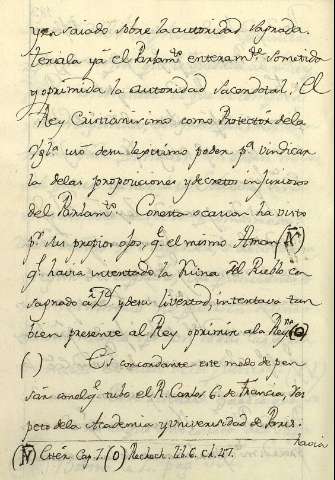 y ensaiado sobre la autoridad sagrada.
Teniala yá el Parlam.to enteram.te sometida
y oprimida la autoridad sacerdotal; El
Rey Cristianisimo como Protectór de la
Ygl.a usó de su legitimo poder p.a vindicar
la de las proporciones y decretos injuriosos
del Parlam.to Con esta ocasion ha visto
p.r sus propios ojos, q.e el mismo Aman (N)
q.e havia intentado la Ruina del Pueblo con
sagrado a D.s y de su livertad, intentava tam
bien presente al Rey oprimir a la Reyna (O)
( ) Es concordante este modo de pen
sár con el q.e tubo el R. Carlos 6. de Francia, res
peto de la Academia y Vniversidad de Paris.
havia
(N) Estér. Cap. 7. (O) Lib. 6. Ch. 47.